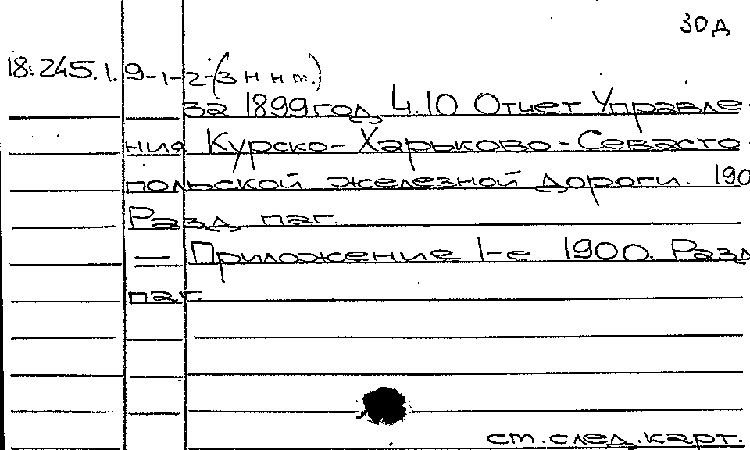 30д
18.245.1.9-1-2-(3 н н т.)
за 1899 год Ч.10 Отчет Управле-
ния Курско-Харьково-Севасто-
польской железной дороги. 190
Разд паг.
— Приложение 1-е 1900. Разд
паг.
ст. след. карт.